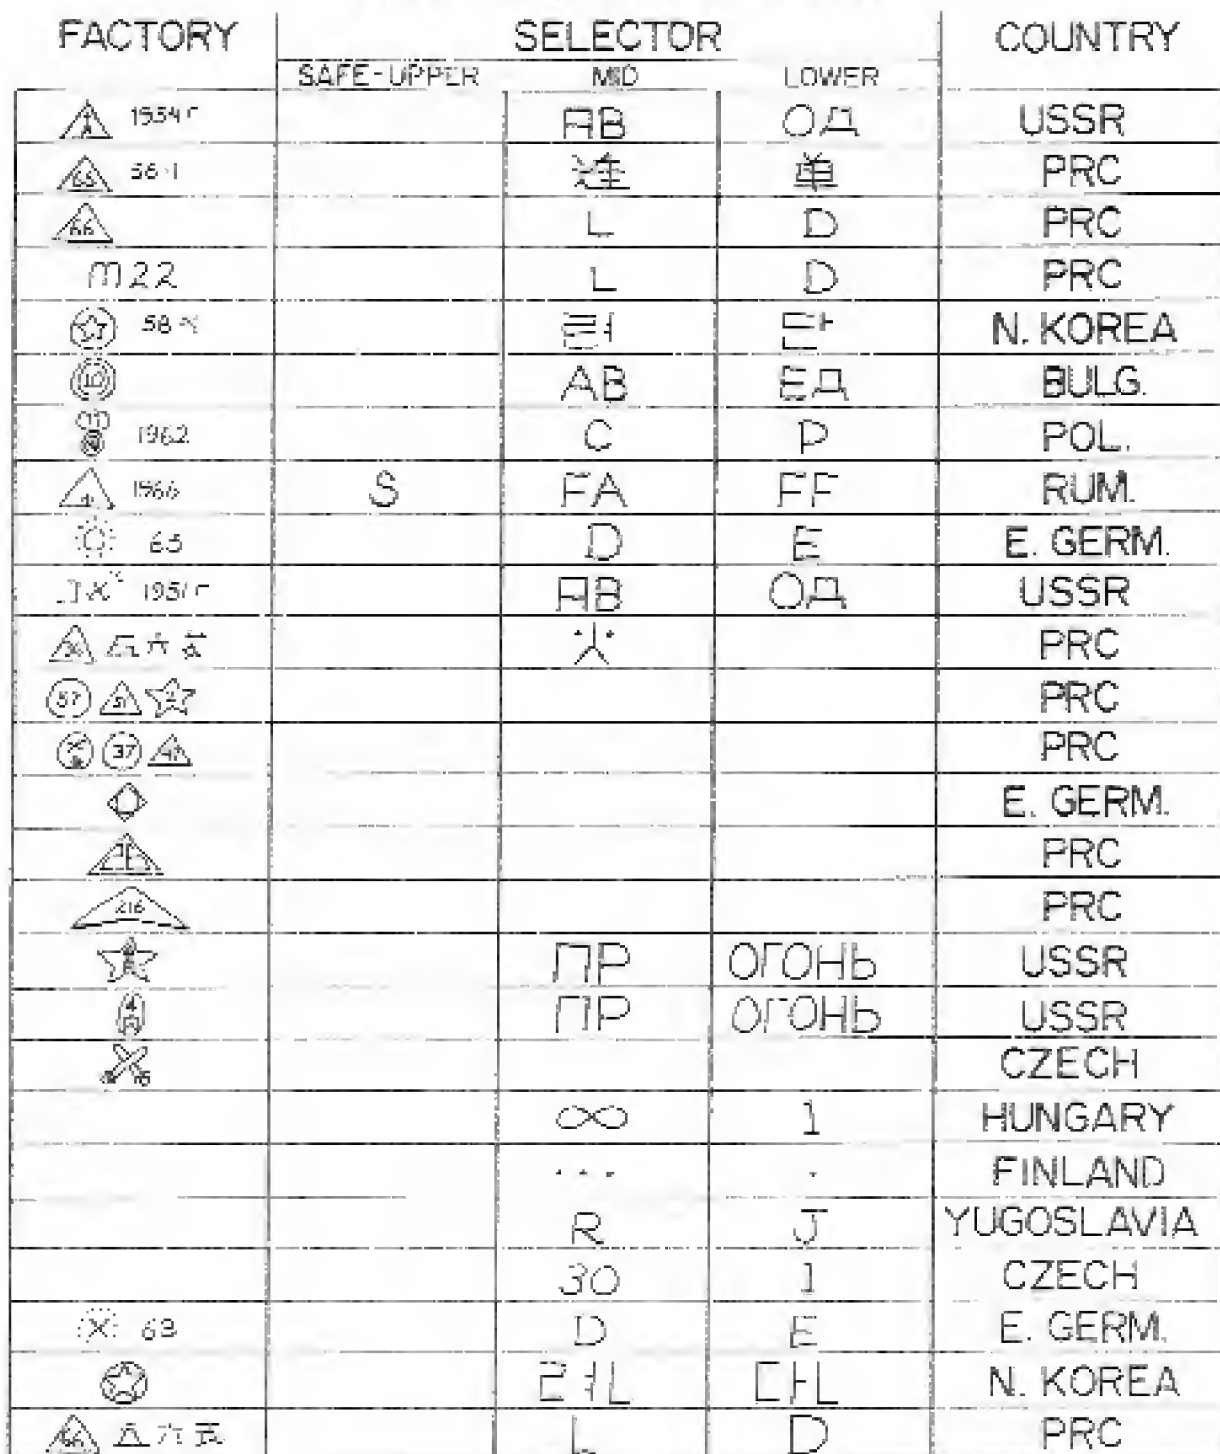 FACTORY SELECTOR COUNTRY
SAFE-UPPER MID LOWER
1954 г АВ ОД USSR
66 56-1 連 单 PRC
66 L D PRC
M22 L D PRC
58 N. KOREA
10 АВ ЕД BULG.
11 1962 C P POL.
1966 S FA FF RUM.
65 D E E. GERM.
1951 г АВ ОД USSR
PRC
37 PRC
37 PRC
E. GERM.
PRC
216 PRC
ПР ОГОНЬ USSR
ПР ОГОНЬ USSR
CZECH
∞ 1 HUNGARY
... . FINLAND
R J YUGOSLAVIA
30 1 CZECH
63 D E E. GERM.
N. KOREA
66 L D PRC